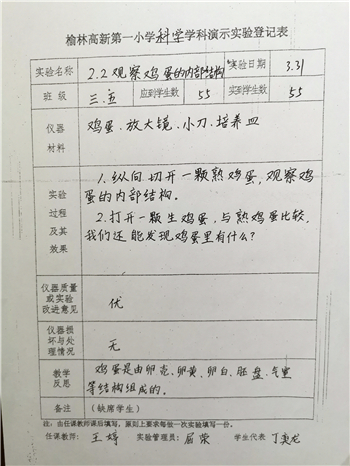 榆林高新第一小学科学学科演示实验登记表
实验名称 2.2观察鸡蛋的内部结构 实验日期 3.31
班级 三.五 应到学生数 55 实到学生数 55
仪器
材料
鸡蛋、放大镜、小刀、培养皿
实验
过程
及其
效果
1.纵向切开一颗熟鸡蛋,观察鸡
蛋的内部结构。
2.打开一颗生鸡蛋,与熟鸡蛋比较,
我们还能发现鸡蛋里有什么?
仪器质量
或实验
改进意见
优
仪器损
坏与处
理情况
无
教学
反思
鸡蛋是由卵壳、卵黄、卵白、胚盘、气室
等结构组成的。
备注 (缺席学生)
注:由任课教师课后填写,原则上要求每做一次实验填写一份。
任课教师: 王婷 实验管理员: 屈荣 学生代表 丁奕龙